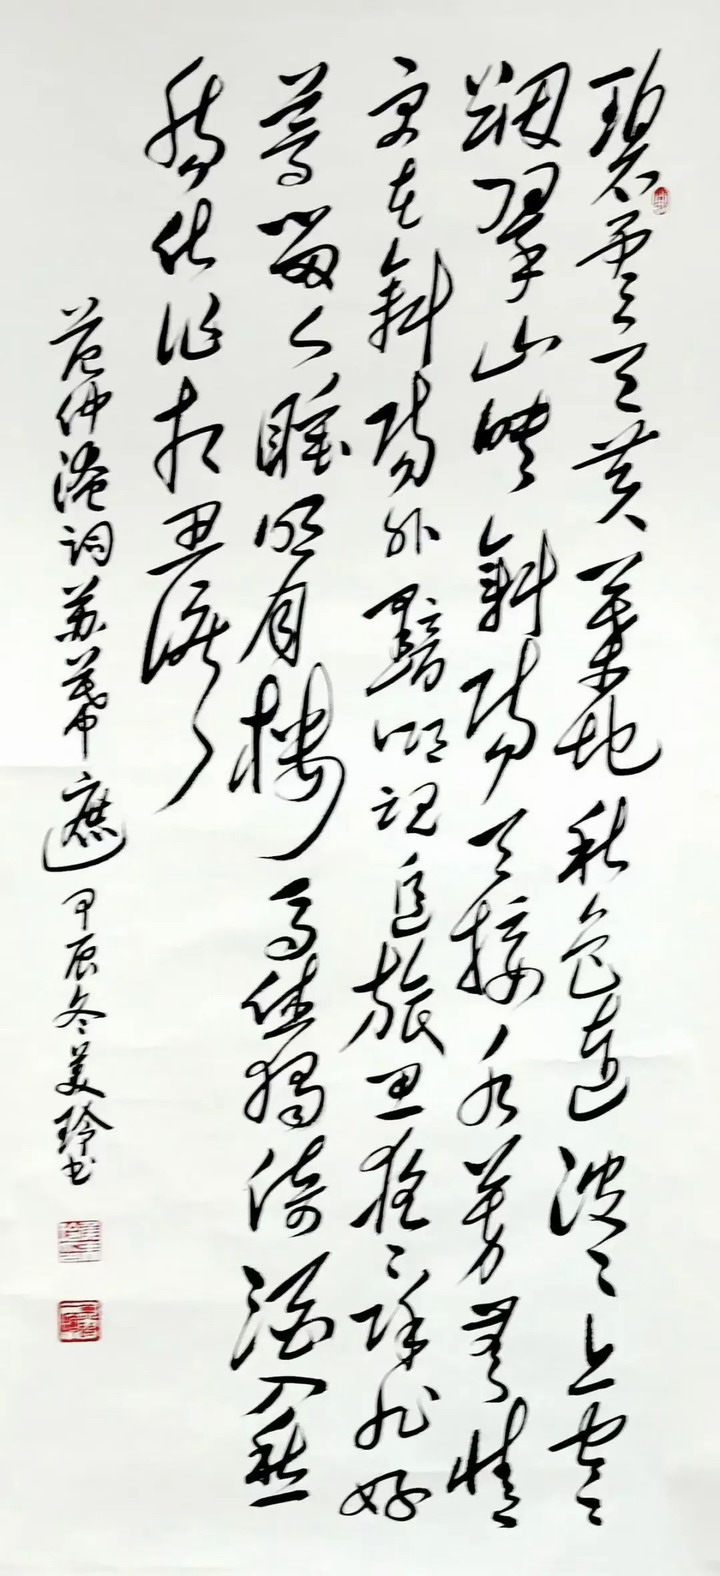 碧雲天黄葉地秋色連波々上寒
烟翠山映斜陽天接水芳草無情
更在斜陽外黯鄉魂追旅思夜々除非好
夢留人睡明月樓高休獨倚酒入愁
腸化作相思淚
范仲淹词苏幕遮甲辰冬美玲书